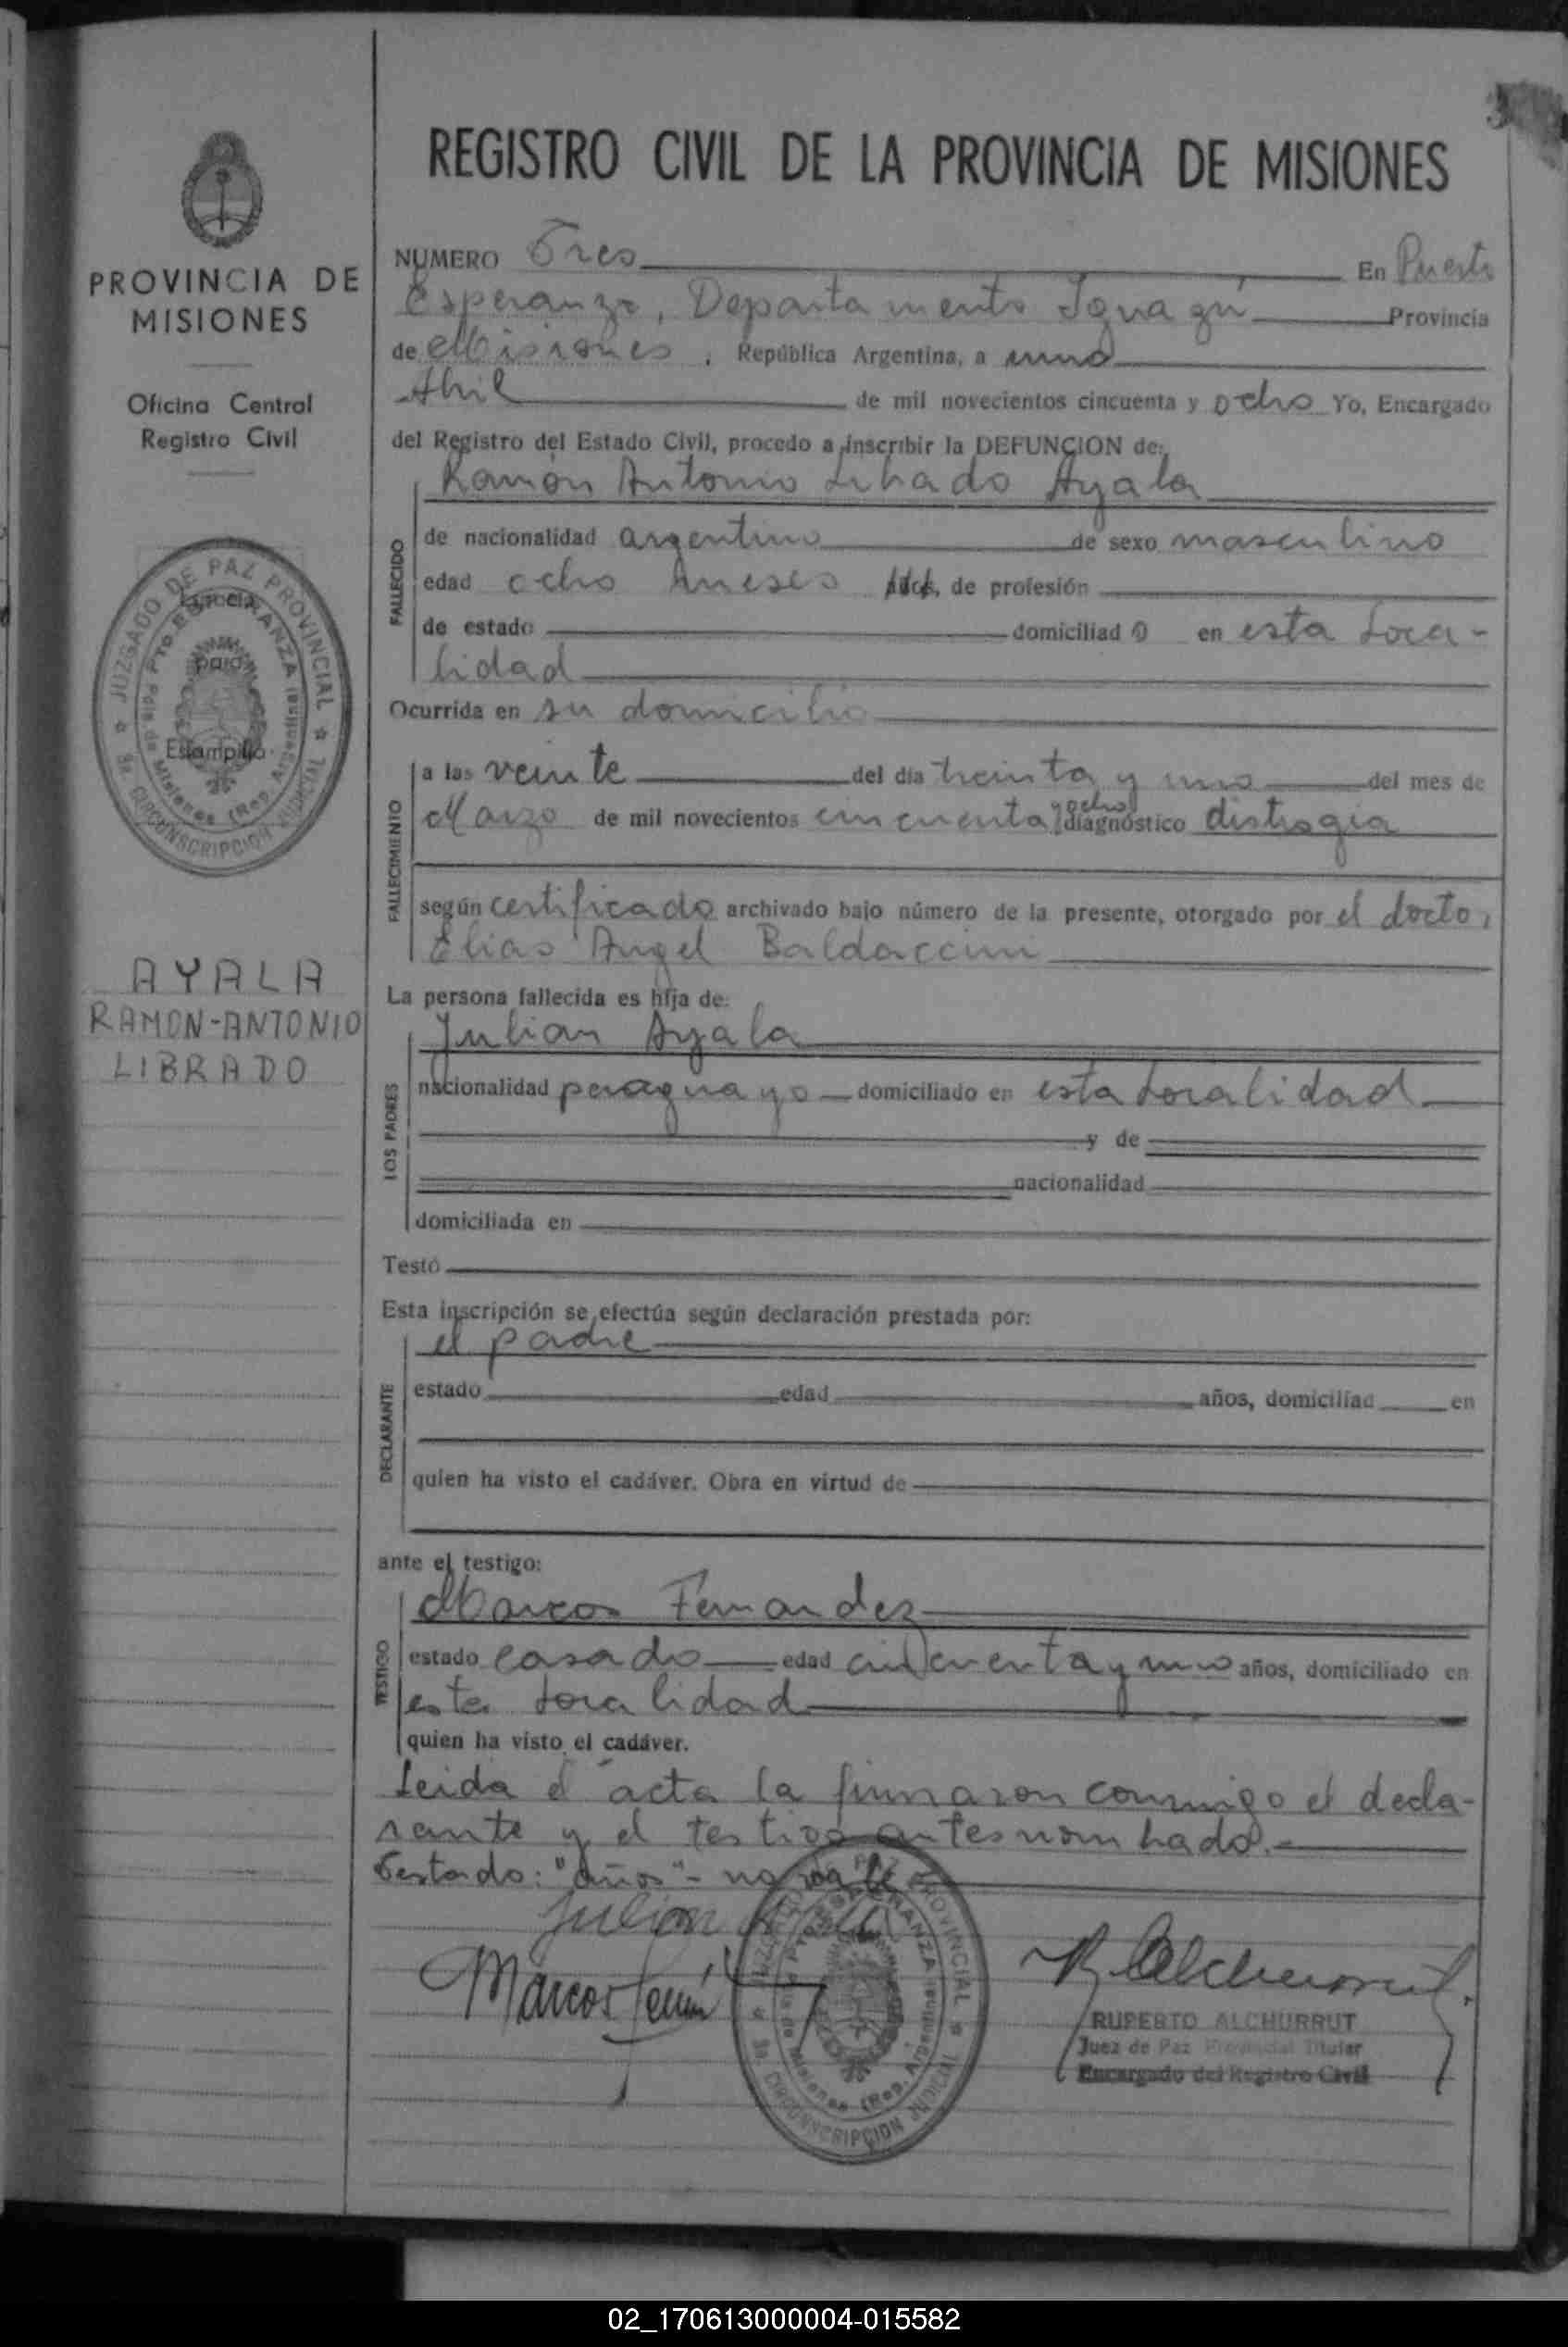 REGISTRO CIVIL DE LA PROVINCIA DE MISIONES
PROVINCIA DE
MISIONES
Oficina Central
Registro Civil
JUZGADO DE PAZ PROVINCIAL
PTO. ESPERANZA
Pcia de Misiones (Rep. Argentina)
3a. CIRCUNSCRIPCION JUDICIAL
Espacio
para
Estampilla
AYALA
RAMON-ANTONIO
LIBRADO
NUMERO Tres En Puerto
Esperanza, Departamento Iguazú Provincia
de Misiones, República Argentina, a uno
Abril de mil novecientos cincuenta y ocho Yo, Encargado
del Registro del Estado Civil, procedo a inscribir la DEFUNCION de:
FALLECIDO
Ramón Antonio Librado Ayala
de nacionalidad argentino de sexo masculino
edad ocho meses años, de profesión
de estado domiciliado en esta Loca-
lidad
Ocurrida en su domicilio
FALLECIMIENTO
a las veinte del día treinta y uno del mes de
Marzo de mil novecientos cincuenta y ocho diagnóstico distrogia
según certificado archivado bajo número de la presente, otorgado por el doctor
Elias Angel Baldaccini
La persona fallecida es hija de:
LOS PADRES
Julian Ayala
nacionalidad paraguayo domiciliado en esta Localidad
y de
nacionalidad
domiciliada en
Testó
Esta inscripción se efectúa según declaración prestada por:
DECLARANTE
el padre
estado edad años, domiciliad en
quien ha visto el cadáver. Obra en virtud de
ante el testigo:
TESTIGO
Marcos Fernandez
estado casado edad cincuenta y uno años, domiciliado en
esta Localidad
quien ha visto el cadáver.
Leida el acta la firmaron conmigo el decla-
rante y el testigo antesnombrado.-
Testado: "años" - no vale
Julian Ayala
Marcos
JUZGADO DE PAZ PROVINCIAL
PTO. ESPERANZA
Pcia de Misiones (Rep. Argentina)
3a. CIRCUNSCRIPCION JUDICIAL
R Alchurrut
RUPERTO ALCHURRUT
Juez de Paz Provincial Titular
Encargado del Registro Civil
02_170613000004-015582